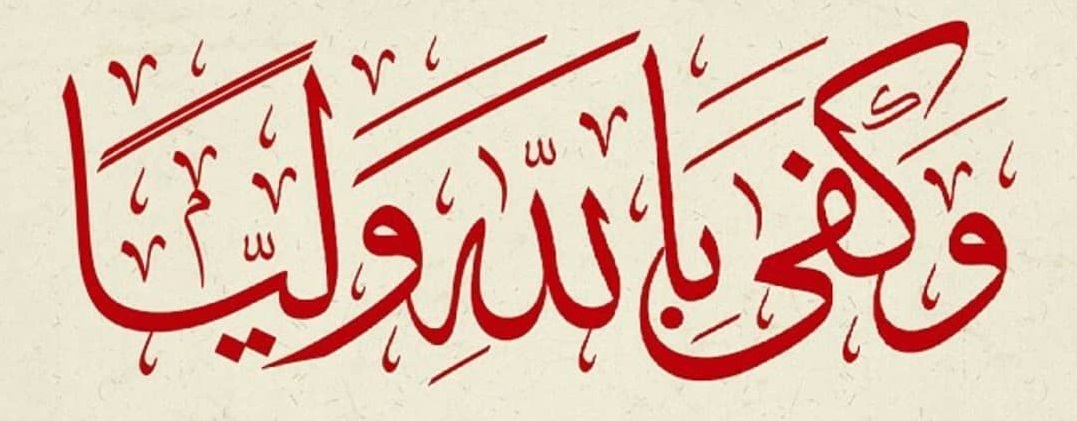 وَكَفَى بِاللَّهِ وَلِيًّا